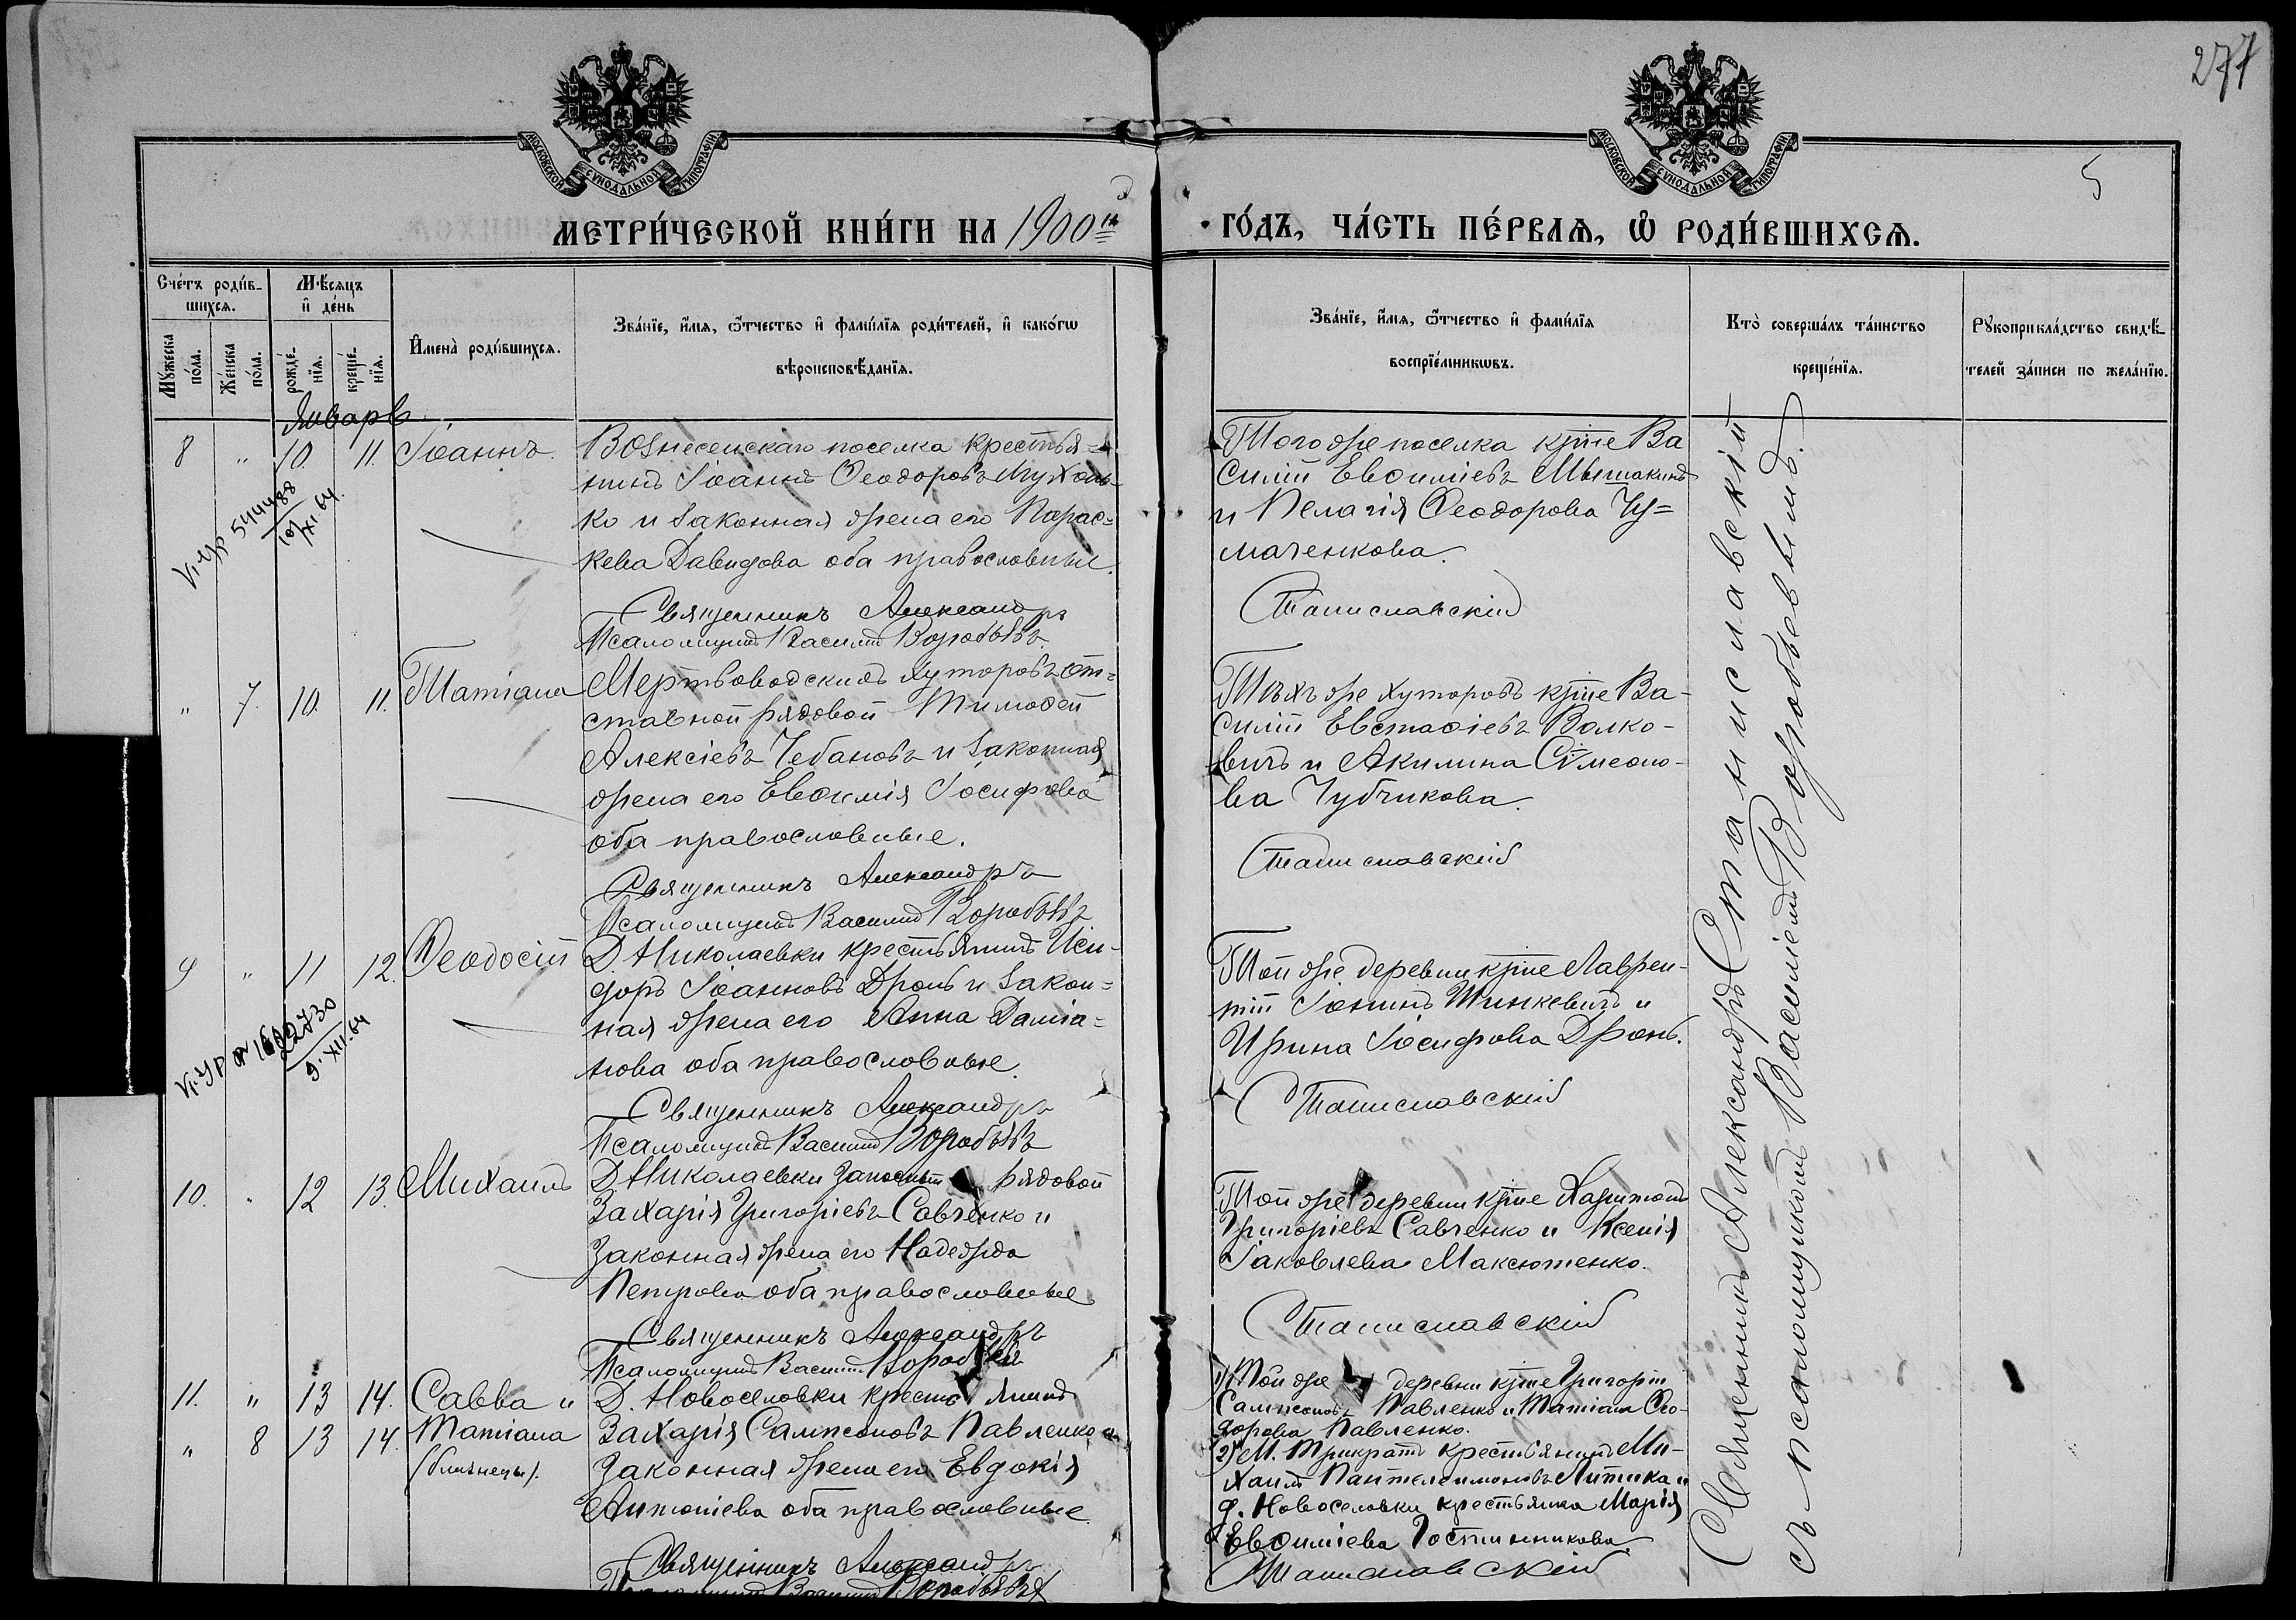 277
5
МОСКОВСКОЙ СѴНОДАЛЬНОЙ ТИПОГРАФІИ
МОСКОВСКОЙ СѴНОДАЛЬНОЙ ТИПОГРАФІИ
МЕТРИ́ЧЕСКОЙ КНИ́ГИ НА 1900й
ГО́ДЪ, ЧА́СТЬ ПЕ́РВАѦ, Ѡ҆ РОДИ́ВШИХСѦ.
Сче́тъ роди́в-
шихсѧ.
Мꙋ́жеска
по́ла.
Же́нска
по́ла.
Мѣ́сѧцъ
и҆ де́нь
рожде́-
нїѧ.
креще́-
нїѧ.
И҆мена̀ роди́вшихсѧ.
Зва́нїе, и҆́мѧ, ѻ҆́тчество и҆ фами́лїѧ роди́телей, и҆ како́гѡ
вѣроисповѣ́данїѧ.
Зва́нїе, и҆́мѧ, ѻ҆́тчество и҆ фами́лїѧ
воспрїе́мникѡвъ.
Кто̀ соверша́лъ та́инство
креще́нїѧ.
Рꙋкоприкла́дство свидѣ́-
телей за́писи по жела́нїю.
Январь
8 " 10. 11. Іоаннъ.
Вознесенскаго поселка крестья-
нинъ Іоаннъ Ѳеодоровъ
ко и законная жена его Парас-
кева Давидова оба православные.
Священникъ Александръ
Псаломщикъ Василій Воробьевъ
Того же поселка кр-не Ва
силій Евѳиміевъ Мышакинъ
и Пелагія Ѳеодорова Чу=
маченкова.
Станиславскій
544488
10/XI.64.
" 7. 10. 11. Татіана
Мертвоводскихъ хуторовъ от=
ставной рядовой Тимоѳей
Алексіевъ Чебановъ и законная
жена его Евѳимія Іосифова
оба православные.
Священникъ Александръ
Псаломщикъ Василій Воробьевъ
Тѣхъ же хуторовъ кр-не Ва-
силій Евстафіевъ Волко-
вичъ и Акилина Сѵмеоно-
ва Чубчикова.
Станиславскій
9 " 11 12. Ѳеодосій
Д Николаевки крестьянинъ Иси-
доръ Іоанновъ Дронь и закон=
ная жена его Анна Даміа=
нова оба православные.
Священникъ Александръ
Псаломщикъ Василій Воробьевъ
Той же деревни кр-не Лаврен-
тій Іонинъ Шинкевичъ и
Ирина Іосифова Дронь.
Станиславскій
9.XII.64
10. " 12 13. Михаилъ
Д Николаевки рядовой
Захарія Григоріевъ Савченко и
законная жена его Надежда
Петрова оба православные
Священникъ Александръ
Псаломщикъ Василій Воробьевъ
Той же деревни кр-не Харитонъ
Григоріевъ Савченко и Ксенія
Іаковлева Максютенко.
Станиславскій
11. " 13 14. Савва и
" 8 13 14. Татіана
(близнецы).
Д. Новоселовки крестьянинъ
Захарія Сампсоновъ Павленко и
законная жена его Евдокія
Антоніева оба православные.
Священникъ Александръ
Псаломщикъ Василій Воробьевъ
1) Той же деревни кр-не Григорій
Сампсоновъ Павленко и Татіана Ѳео-
дорова Павленко.
2) М. Трикратъ крестьянинъ Ми-
хаилъ Пантелеимоновъ и
д. Новоселовки крестьянка Марія
Евѳиміева Гостинникова.
Станиславскій
Священникъ Александръ Станиславскій
съ псаломщикомъ Василіемъ Воробьевымъ.